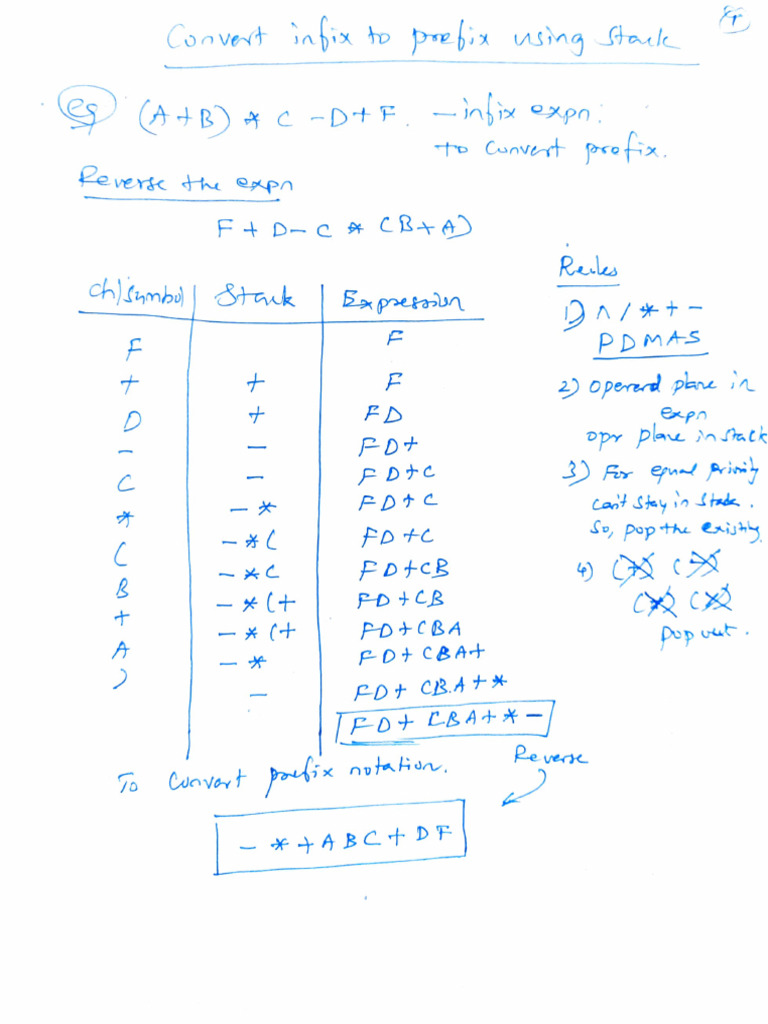 Convert infix to prefix using Stack
eg (A+B) * C -D+F. - infix expn.
to convert prefix.
Reverse the expn
F + D - C * (B+A)
Ch/Symbol | Stack | Expression
F F
+ + F
D + FD
- - FD+
C - FD+C
* -* FD+C
( -*( FD+C
B -*( FD+CB
+ -*(+ FD+CB
A -*(+ FD+CBA
) -* FD+CBA+
- FD+CBA+*
FD+CBA+*-
Rules
1) ^ / * + -
PDMAS
2) Operand place in
expn
opr place in stack
3) For equal priority
can't stay in stack.
So, pop the existing.
4) (+) (-)
(*) (/)
pop out.
To convert prefix notation.
Reverse
- * + A B C + D F